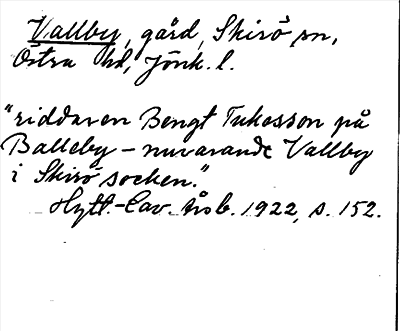 Vallby, gård, Skirö sn,
Östra hd, Jönk. l.
"riddaren Bengt Tukesson på
Balleby – nuvarande Vallby
i Skirö socken."
Hylt.-Cav. årsb. 1922, s. 152.